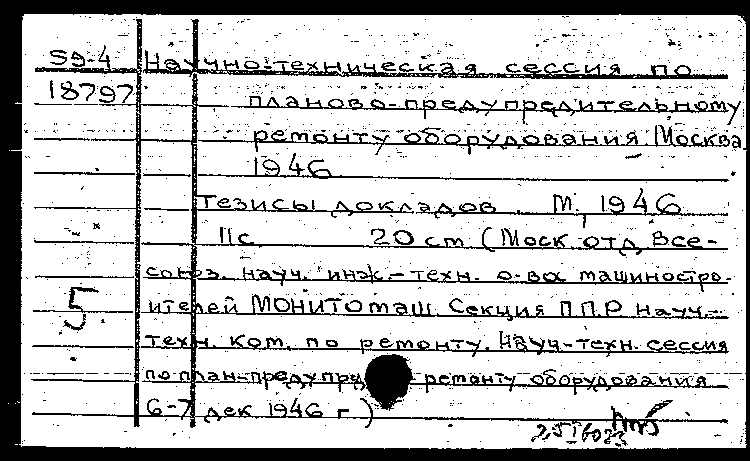 59-4 Научно-техническая сессия по
18797 планово-предупредительному
ремонту оборудования. Москва.
1946
Тезисы докладов. М., 1946
11с 20 см (Моск. отд. Все-
союз. науч. инж.-техн. о-ва машиностро-
5 ителей МОНИТОмаш. Секция ППР Науч.-
техн. ком. по ремонту. Науч-техн. сессия
по план-предупред ремонту оборудования
6-7 дек 1946 г.)